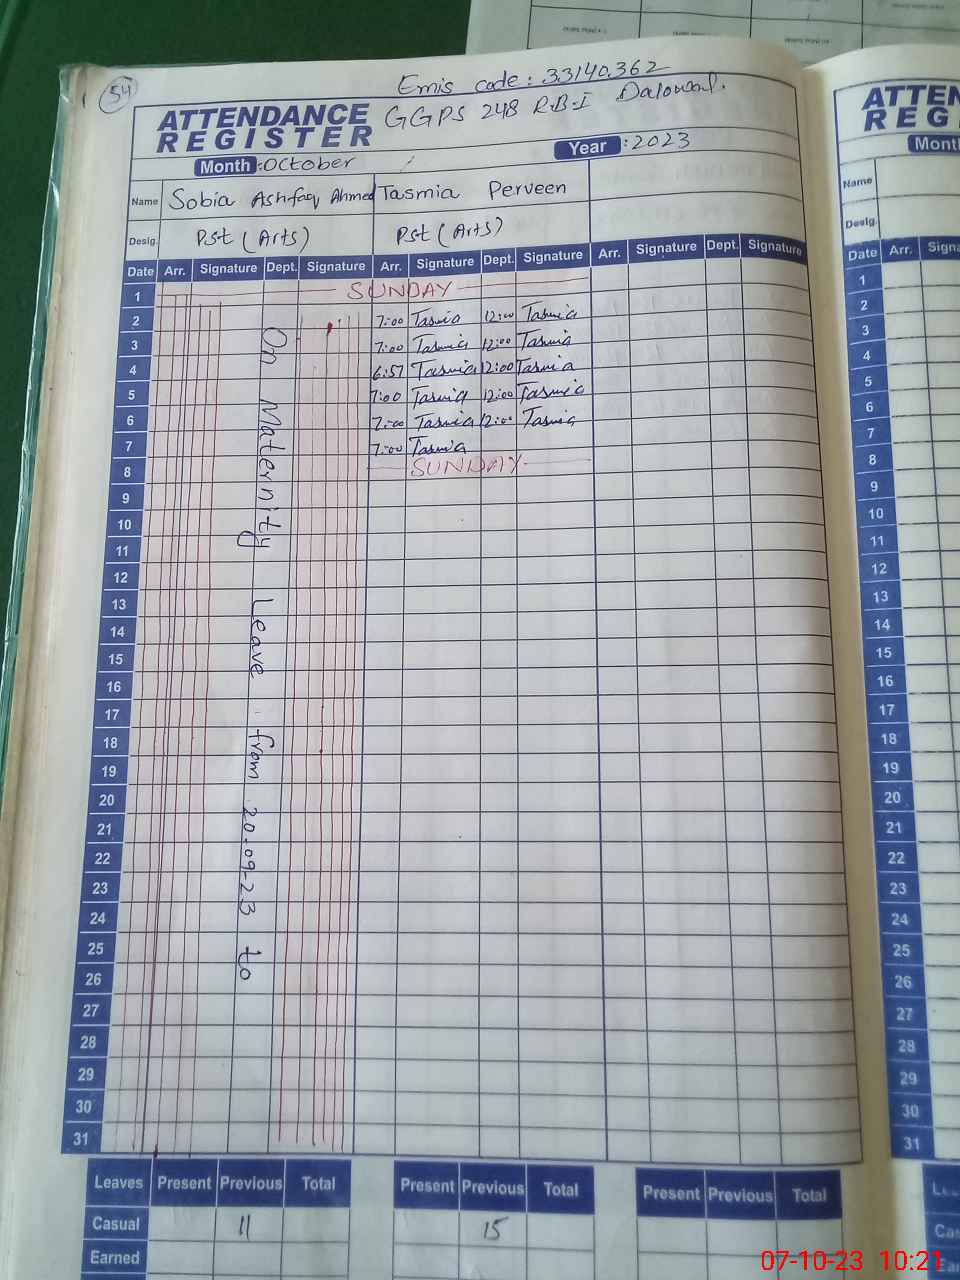 54
Emis code: 33140362
ATTENDANCE REGISTER
GGPS 248 R.B-I
Month :October
Year :2023
Name Sobia Ashfaq Ahmed Tasmia Perveen
Desig. Pst (Arts) Pst (Arts)
Date Arr. Signature Dept. Signature Arr. Signature Dept. Signature Arr. Signature Dept. Signature
1 SUNDAY
2 7:00 Tasmia 12:00 Tasmia
3 7:00 Tasmia 12:00 Tasmia
4 6:57 Tasmia 12:00 Tasmia
5 7:00 Tasmia 12:00 Tasmia
6 7:00 Tasmia 12:00 Tasmia
7 7:00 Tasmia
8 SUNDAY
9
10
11
12
13
14
15
16
17
18
19
20
21
22
23
24
25
26
27
28
29
30
31
On Maternity Leave from 20-09-23 to
Leaves Present Previous Total Present Previous Total Present Previous Total
Casual 11 15
Earned
ATTEN
REG
Month
Name
Desig.
Date Arr. Signa
1
2
3
4
5
6
7
8
9
10
11
12
13
14
15
16
17
18
19
20
21
22
23
24
25
26
27
28
29
30
31
07-10-23 10:21